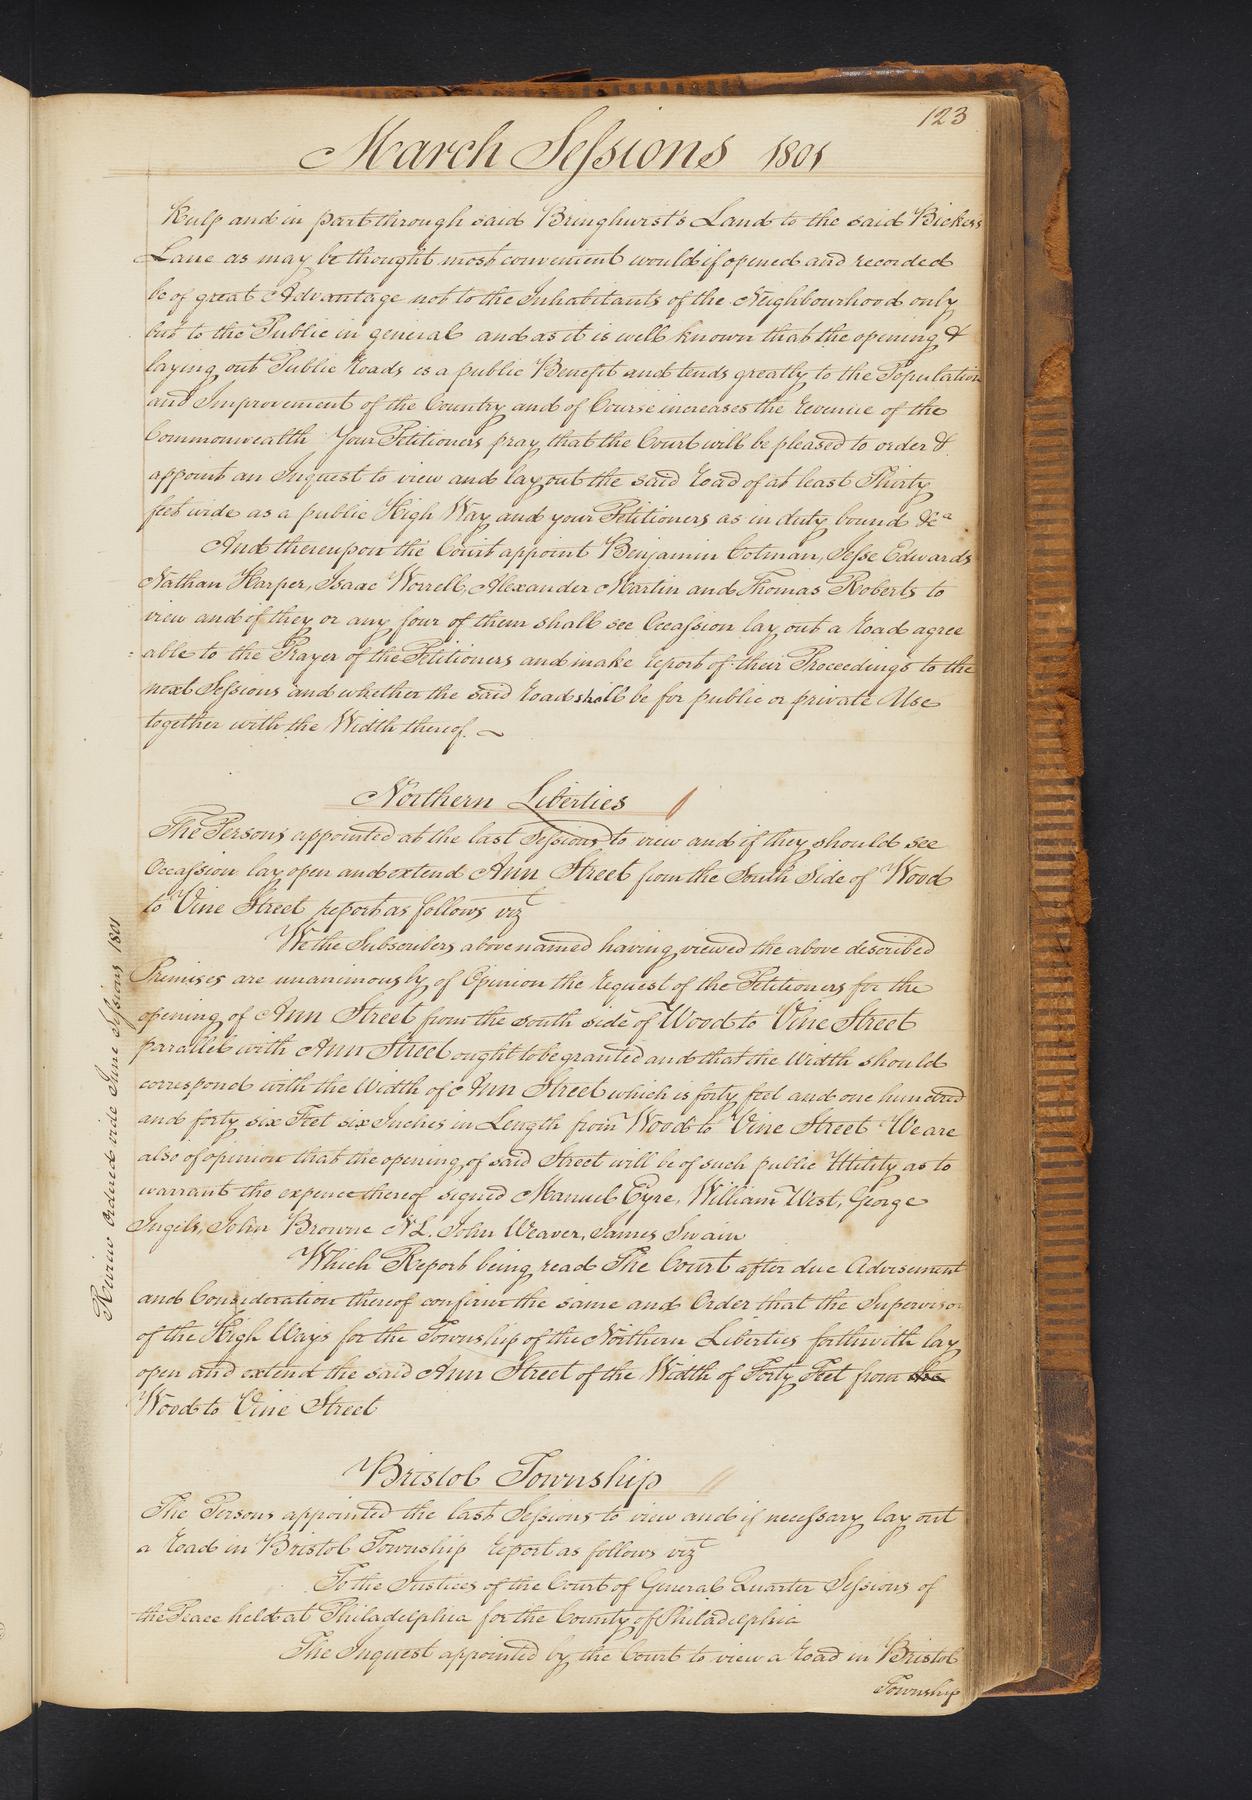 123
March Sessions 1801
Kulp and in part through said Bringhurst's Land to the said Bickers
Lane as may be thought most convenient would if opened and recorded
be of great Advantage not to the Inhabitants of the Neighbourhood only
but to the Public in general and as it is well known that the opening &
laying out Public Roads is a public Benefit and tends greatly to the Population
and Improvement of the Country and of Course increases the Revenue of the
Commonwealth Your Petitioners pray that the Court will be pleased to order &
appoint an Inquest to view and lay out the said Road of at least Thirty
feet wide as a public High Way and your Petitioners as in duty bound &ca
And thereupon the Court appoint Benjamin Cotman, Jesse Edwards
Nathan Harper, Isaac Worrell, Alexander Martin and Thomas Roberts to
view and if they or any four of them shall see Occassion lay out a Road agree
=able to the Prayer of the Petitioners and make report of their Proceedings to the
next Sessions and whether the said Road shall be for public or private Use
together with the Width thereof.
Northern Liberties
The Persons appointed at the last Sessions to view and if they should see
Occassion lay open and extend Ann Street from the South Side of Wood
to Vine Street report as follows vizt
We the Subscribers above named having viewed the above described
Premises are unanimously of Opinion the Request of the Petitioners for the
opening of Ann Street from the south side of Wood to Vine Street
parallel with Ann Street ought to be granted and that the Width should
correspond with the Width of Ann Street which is forty feet and one hundred
and forty six Feet six Inches in Length from Wood to Vine Street We are
also of opinion that the opening of said Street will be of such public Utility as to
warrant the expence thereof signed Manuel Eyre, William West, George
Ingels, John Browne N.L. John Weaver, James Swain
Which Report being read The Court after due Advisement
and Consideration thereof confirm the same and Order that the Supervisor
of the High Ways for the Township of the Northern Liberties forthwith lay
open and extend the said Ann Street of the Width of Forty Feet from the
Wood to Vine Street
Review ordered vide June Sessions 1801
Bristol Township
The Persons appointed the last Sessions to view and if necessary lay out
a Road in Bristol Township report as follows vizt
To the Justices of the Court of General Quarter Sessions of
the Peace held at Philadelphia for the County of Philadelphia
The Inquest appointed by the Court to view a Road in Bristol
Township